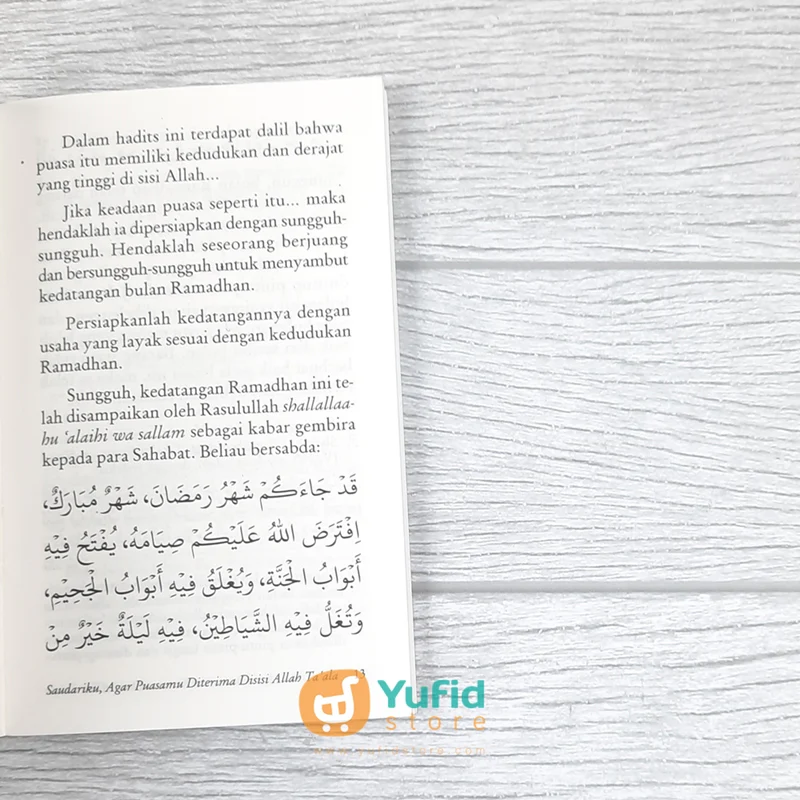 Dalam hadits ini terdapat dalil bahwa
puasa itu memiliki kedudukan dan derajat
yang tinggi di sisi Allah...
Jika keadaan puasa seperti itu... maka
hendaklah ia dipersiapkan dengan sungguh-
sungguh. Hendaklah seseorang berjuang
dan bersungguh-sungguh untuk menyambut
kedatangan bulan Ramadhan.
Persiapkanlah kedatangannya dengan
usaha yang layak sesuai dengan kedudukan
Ramadhan.
Sungguh, kedatangan Ramadhan ini te-
lah disampaikan oleh Rasulullah shallallaa-
hu ‘alaihi wa sallam sebagai kabar gembira
kepada para Sahabat. Beliau bersabda:
قَدْ جَاءَكُمْ شَهْرُ رَمَضَانَ، شَهْرٌ مُبَارَكٌ،
اِفْتَرَضَ اللهُ عَلَيْكُمْ صِيَامَهُ، يُفْتَحُ فِيْهِ
أَبْوَابُ الْجَنَّةِ، وَيُغْلَقُ فِيْهِ أَبْوَابُ الْجَحِيْمِ،
وَتُغَلُّ فِيْهِ الشَّيَاطِيْنُ، فِيْهِ لَيْلَةٌ خَيْرٌ مِنْ
Saudariku, Agar Puasamu Diterima Disisi Allah Ta’ala 13
Yufid
store
www.yufidstore.com